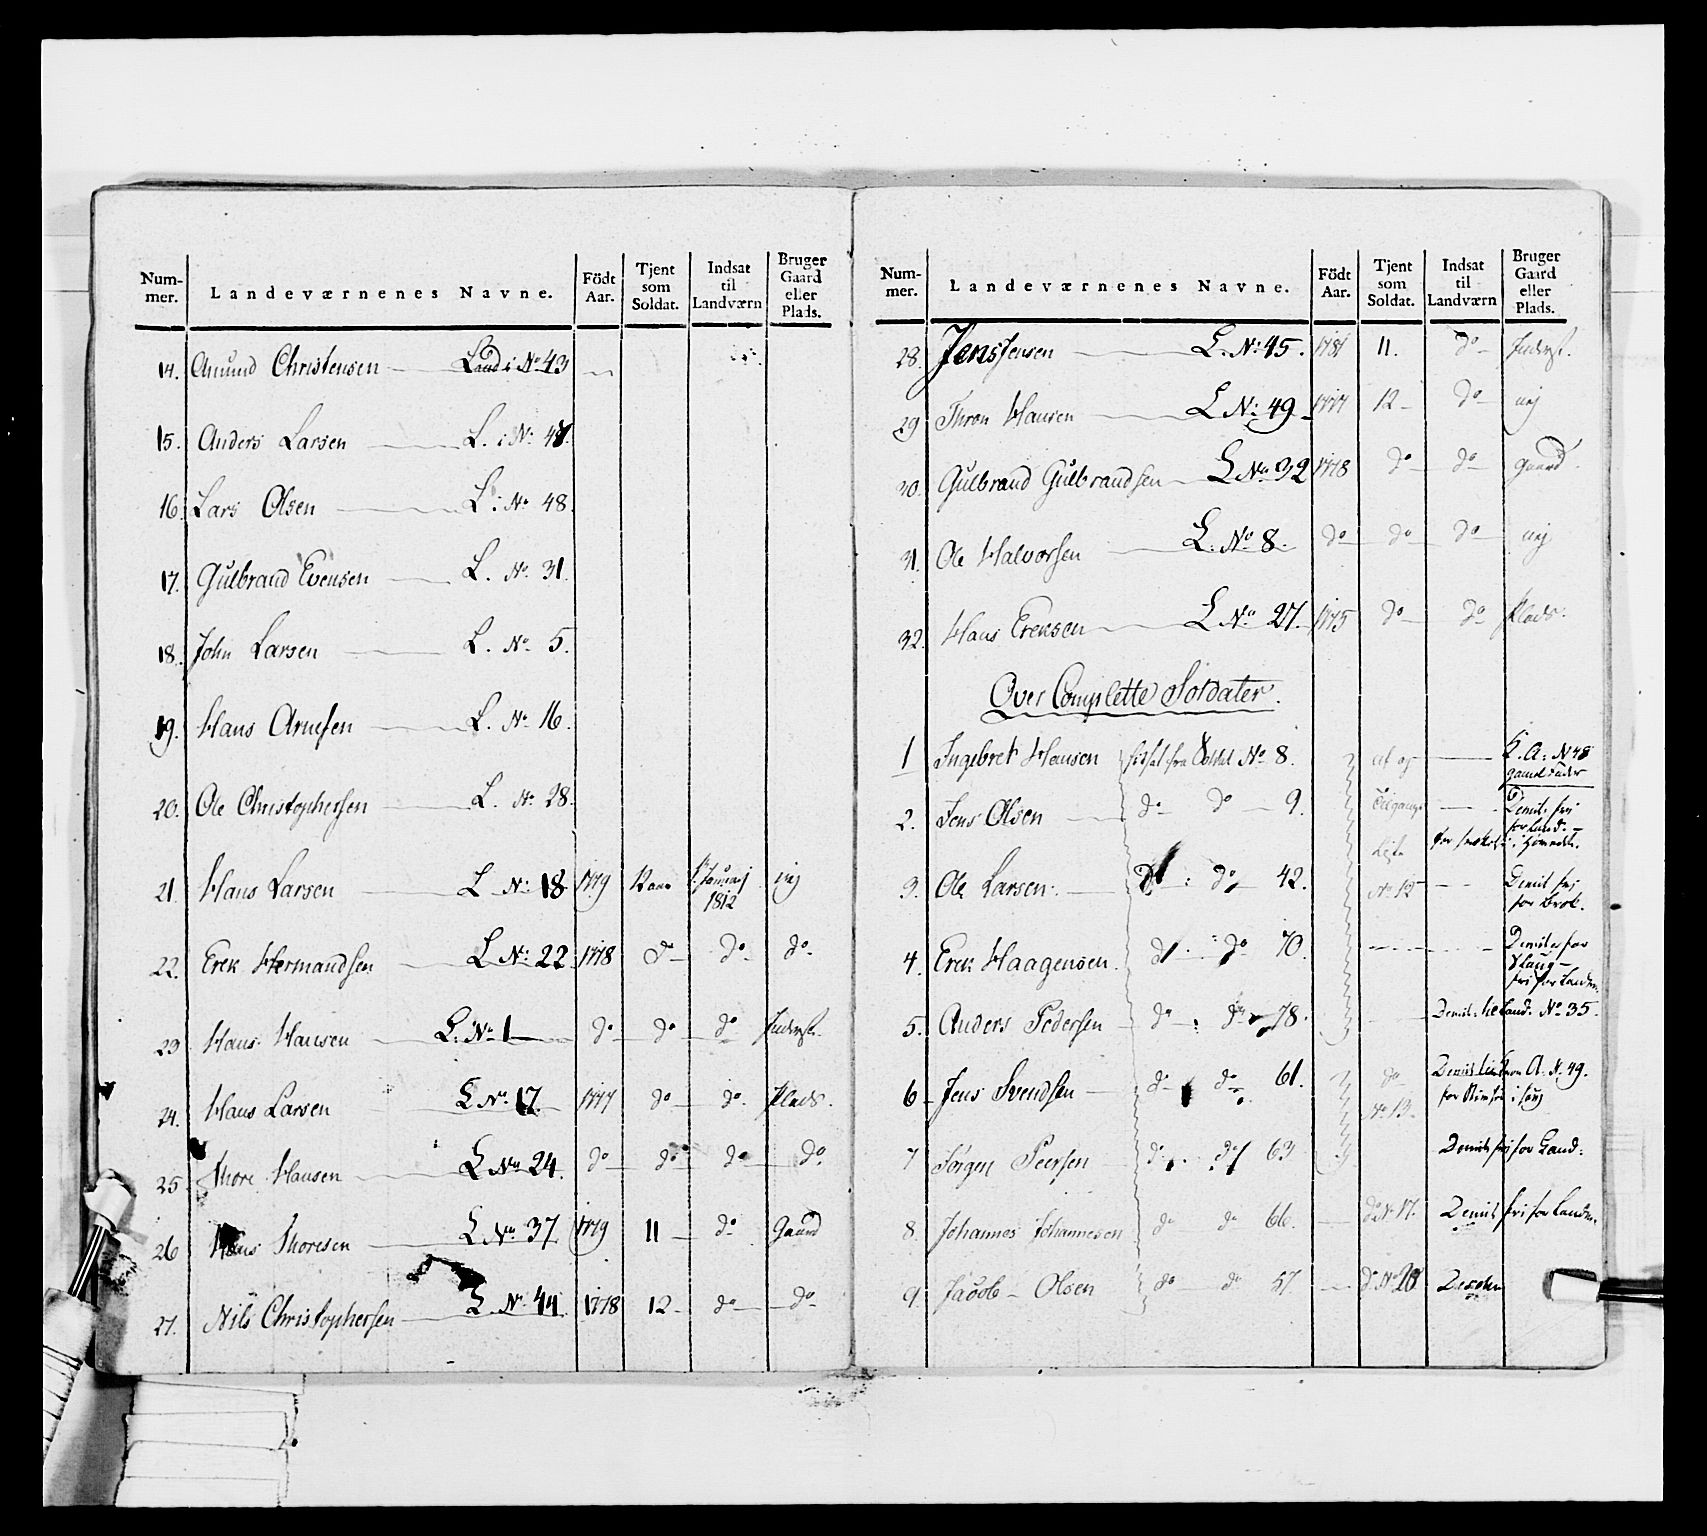 Num-mer. Landeværnenes Navne. Födt Aar. Tjent som Soldat. Indsat til Landværn Bruger Gaard eller Plads.
14. Amund Christensen Land: No 43
15. Anders Larsen L. No 47.
16. Lars Olsen L. No 48.
17. Gulbrand Evensen L. No 31.
18. John Larsen L. No 5.
19. Hans Arnesen L. No 16.
20. Ole Christophersen L. No 28.
21. Hans Larsen L No 18 1779 12 aar 1. Januarj 1812 nej
22. Erek Hermandsen L No 22 1778 do do do
23 Hans Hansen L. No 1 do do do Inderst.
24. Hans Larsen L No 17. 1777 do do Plads.
25 Thore Hansen L No 24 do do do do
26 Hans Thoresen L No 37 1779 11 do Gaard
27. Nils Christophersen L. No 44. 1778 12 do do
Num-mer. Landeværnenes Navne. Födt Aar. Tjent som Soldat. Indsat til Landværn Bruger Gaard eller Plads.
28. Jens Jensen L. No 45. 1781 11. do Inderst.
29 Thron Hansen L No 49 1777 12 do nej
30. Gulbrand Gulbrandsen L No 32 1778 do do gaard
31. Ole Halvorsen L. No 8. do do do nej
32. Hans Ereksen L No 27. 1775 do do Plads.
Over Complette Soldater.
1 Ingebret Hansen fra Soldat No 8. K. A: No 48
2. Jens Olsen do do 9. Demit: fri
3. Ole Larsen. do do 42. No 12 Demit fri for
4. Erek Haagensen do do 70. Demit for fri for Landv.
5. Anders Pedersen do do 78. Demit: Land: No 35.
6 Jens Svendsen do do 61. do No 13. Demit A. N. 49.
7 Jörgen Peersen do do 63 Demit fri for Land:
8. Johannes Johannesen do do 66. do No 17. Demit fri for Landv.
9. Jacob Olsen do do 57 do No 28